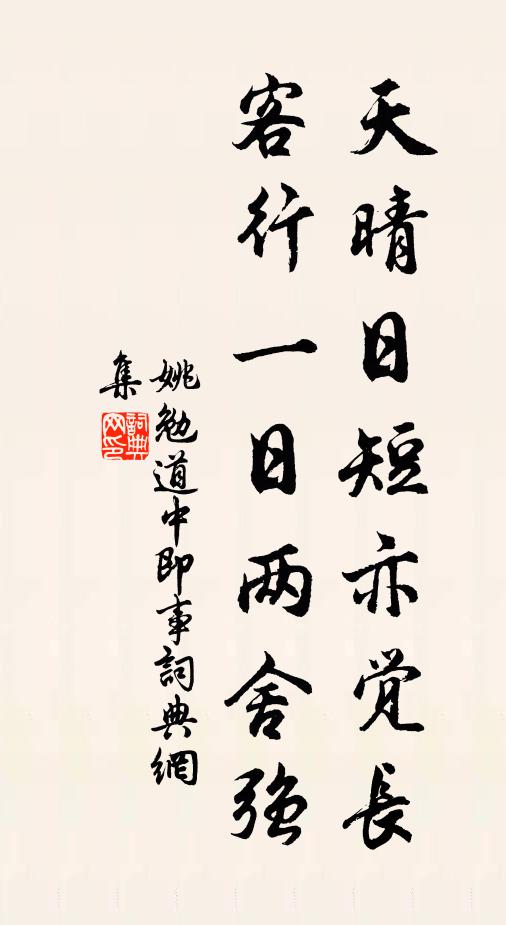 天晴日短亦觉長
客行一日两舍强
姚勉道中即事詞典網
集
詞典网印